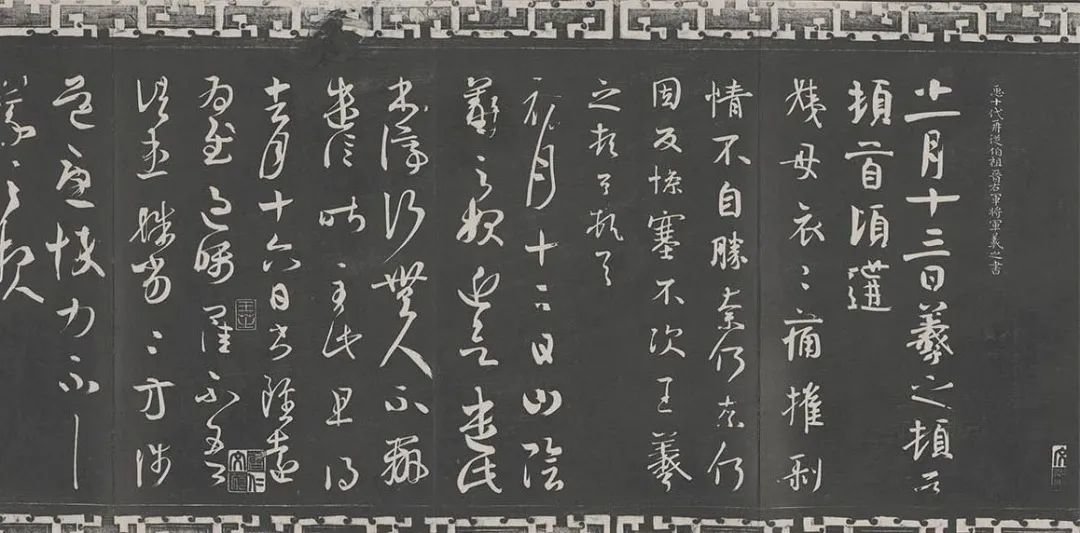 臣十代再從伯祖晉右軍將軍羲之書
一月十三日羲之頓首
頓首頃遘
姨母哀〻痛摧剝
情不自勝奈何奈何
因反慘塞不次王羲
之頓首頓首
初月十二日山陰
羲之報近欲遣此
書停行無人不辦
遣信昨至此且得
去月十六日書雖遠
為慰過囑卿佳不吾
諸患殊劣〻方涉
道憂悴力不具
羲之報